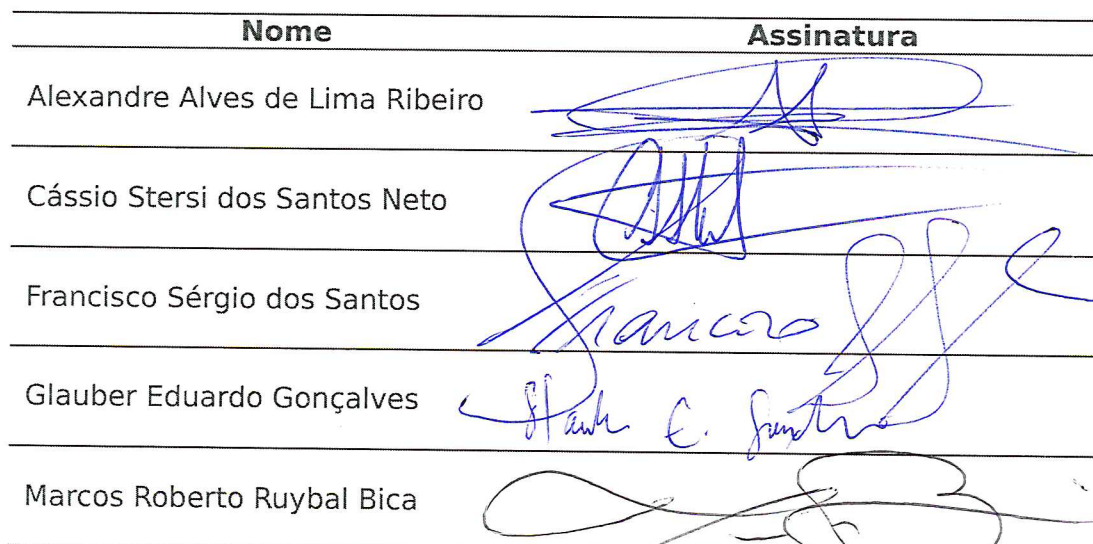 Nome Assinatura
Alexandre Alves de Lima Ribeiro
Cássio Stersi dos Santos Neto
Francisco Sérgio dos Santos Francisco
Glauber Eduardo Gonçalves
Marcos Roberto Ruybal Bica